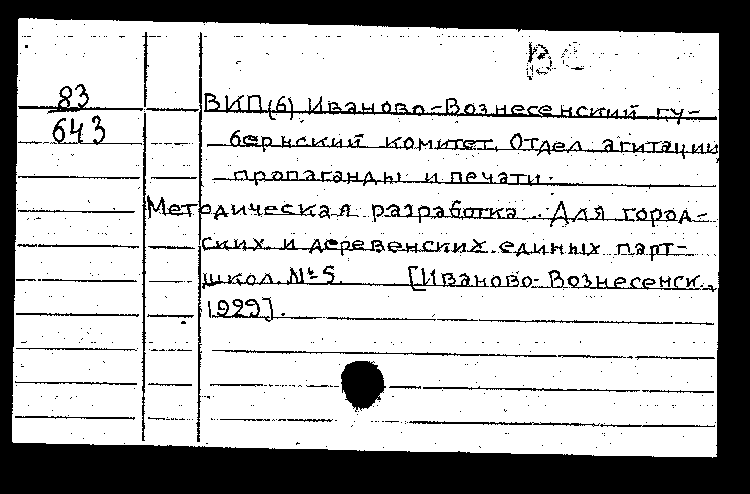 ВС
83
643
ВКП(б) Иваново-Вознесенский гу-
бернский комитет. Отдел агитации
пропаганды и печати.
Методическая разработка. Для город-
ских и деревенских единых парт-
школ. № 5. [Иваново-Вознесенск.,
1929].